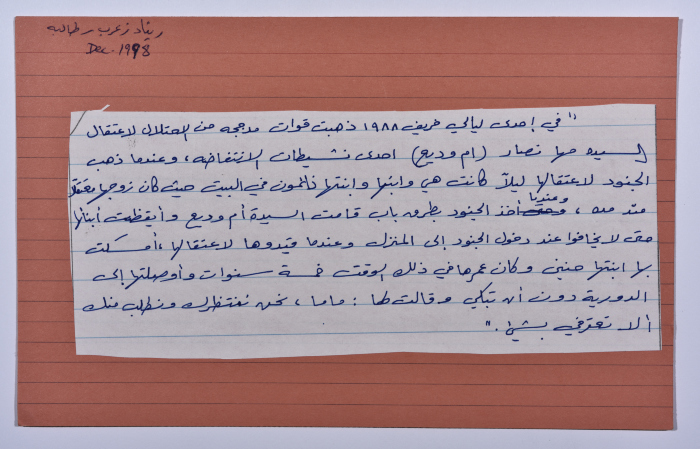 ريناد زعرب - طالبة
Dec. 1998
" في إحدى ليالي خريف ١٩٨٨ ذهبت قوات مدججه من الاحتلال لاعتقال
السيده مها نصار (ام وديع) احدى نشيطات الانتفاضه، وعندما ذهب
الجنود لاعتقالها ليلاً كانت هي وابنها وابنتها نائمون في البيت حيث كان زوجها معتقلا
منذ مده، وعندما أخذ الجنود بطرق باب قامت السيدة أم وديع وأيقظت أبنائها
حتى لا يخافوا عند دخول الجنود إلى المنزل وعندما قيدوها لاعتقالها، أمسكت
بها ابنتها حنين وكان عمرها في ذلك الوقت خمسة سنوات وأوصلتها إلى
الدورية دون أن تبكي وقالت لها: ماما، نحن ننتظرك ونطلب منك
ألا تعترفي بشيئ. "